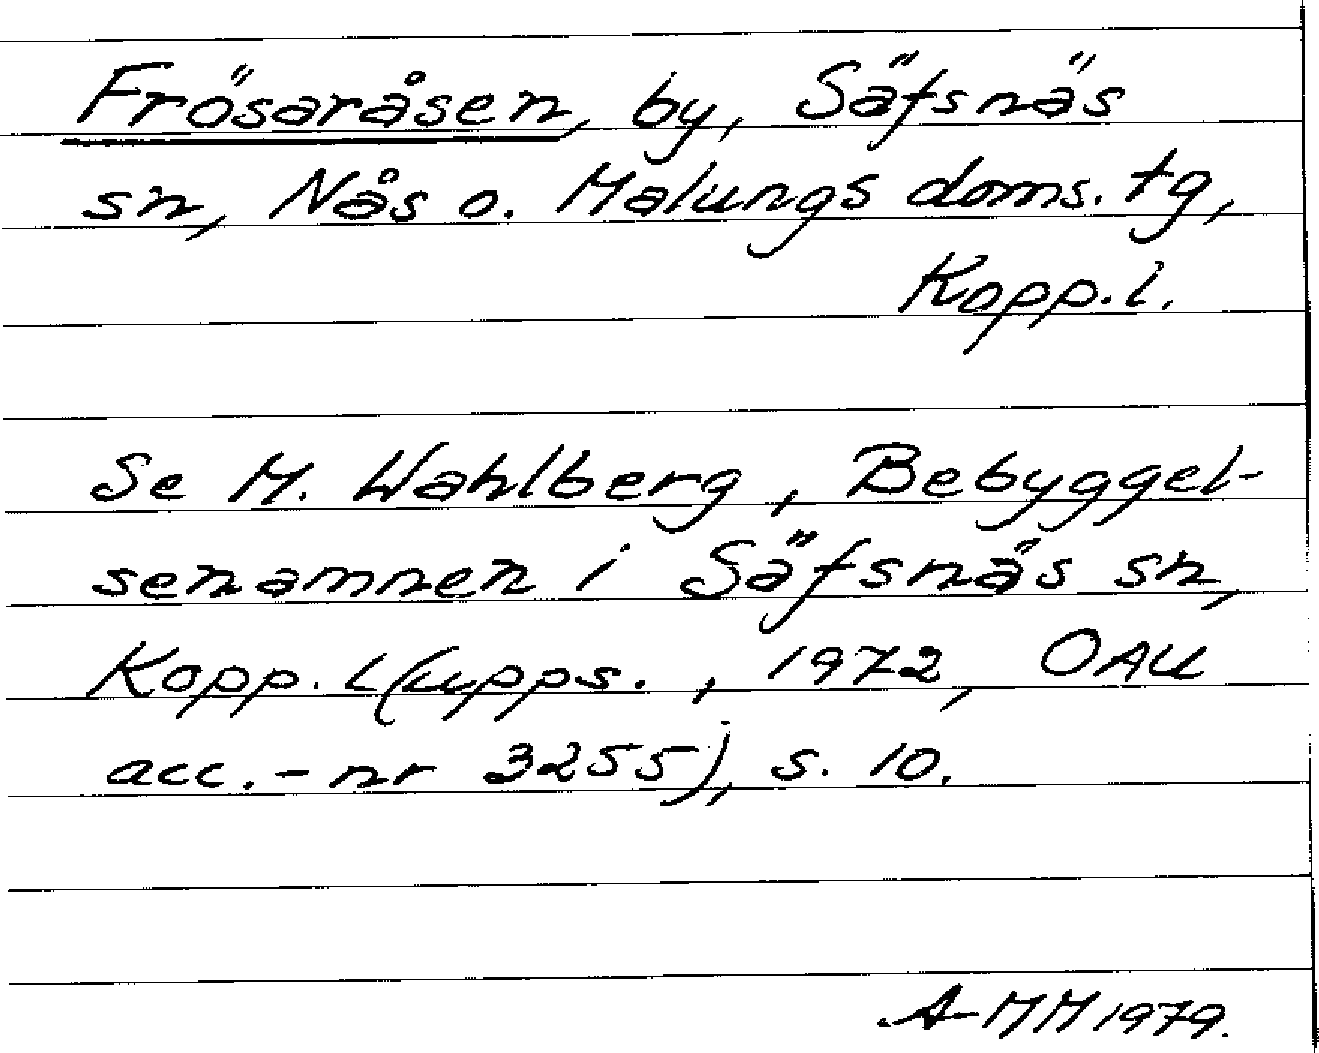 Frösaråsen, by, Säfsnäs
sn, Nås o. Malungs doms. tg,
Kopp. l.
Se M. Wahlberg, Bebyggel-
senamnen i Säfsnäs sn,
Kopp. l (upps., 1972, OAU
acc.-nr 3255), s. 10.
A-MM 1979.